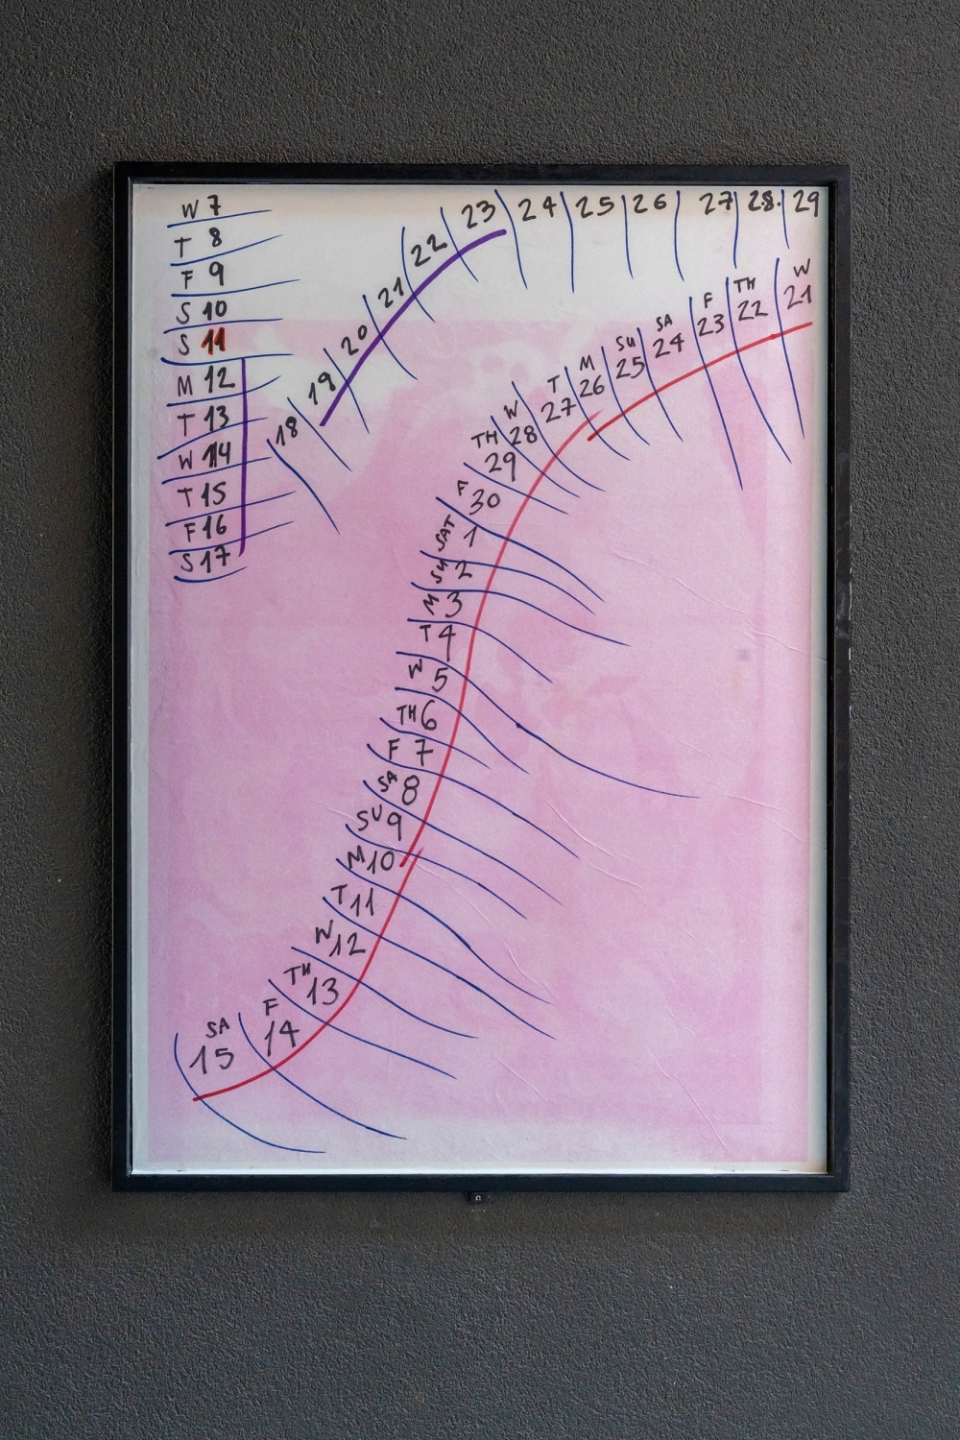 W 7
T 8
F 9
S 10
S 11
M 12
T 13
W 14
T 15
F 16
S 17
18
19
20
21
22
23
24
25
26
27
28.
29
W 21
TH 22
F 23
SA 24
SU 25
M 26
T 27
W 28
TH 29
F 30
SAT 1
SU 2
M 3
T 4
W 5
TH 6
F 7
SA 8
SU 9
M 10
T 11
W 12
TH 13
F 14
SA 15